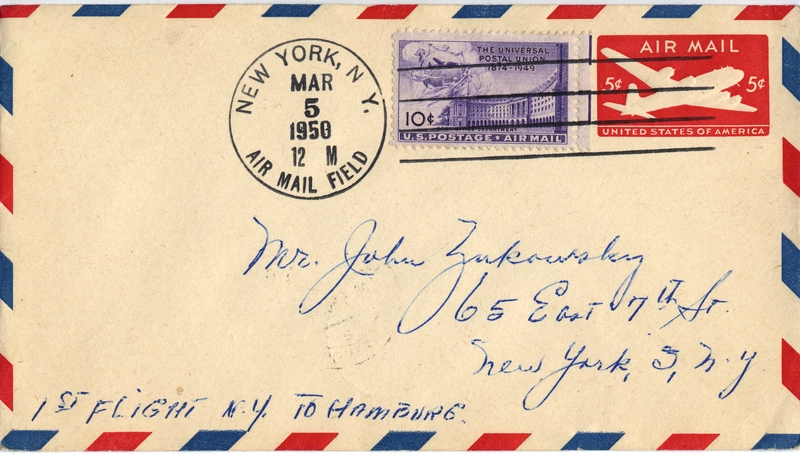 NEW YORK, N.Y.
MAR
5
1950
12 M
AIR MAIL FIELD
THE UNIVERSAL
POSTAL UNION
1874-1949
10¢
U.S. POSTAGE ★ AIR MAIL
AIR MAIL
5¢ 5¢
UNITED STATES OF AMERICA
Mr. John Zukowsky
65 East 7th St.
New York, 3, N.Y
1ST FLIGHT N.Y. TO HAMBURG.